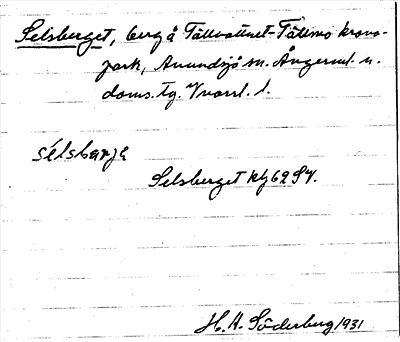 Selsberget, berg å Tällvattnet-Tällmo krono-
park, Anundsjö sn. Ångerml. n.
doms. tg. Vnorrl. l.
sélsbarja
Selsberget kbl 62 S4.
H. H. Söderberg 1931